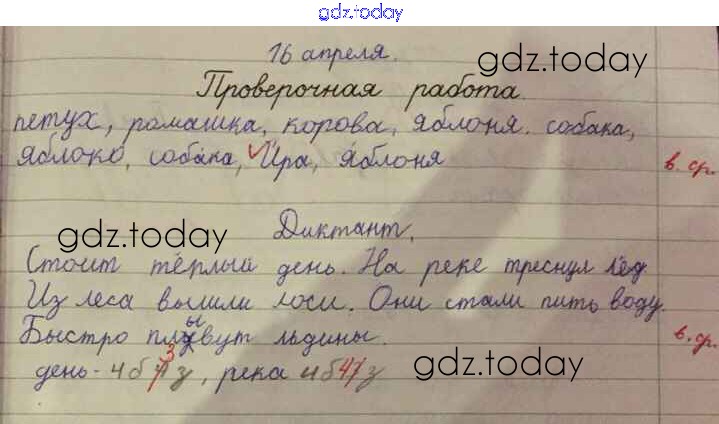 gdz.today
16 апреля.
gdz.today
Проверочная работа.
петух, ромашка, корова, яблоня. собака,
яблоко, собака, Ира, яблоня
в. ср.
gdz.today
Диктант.
Стоит тёплый день. На реке треснул лёд.
Из леса вышли лоси. Они стали пить воду.
Быстро плывут льдины.
в. ср.
день - 4б 3з, река 4б 4з
gdz.today